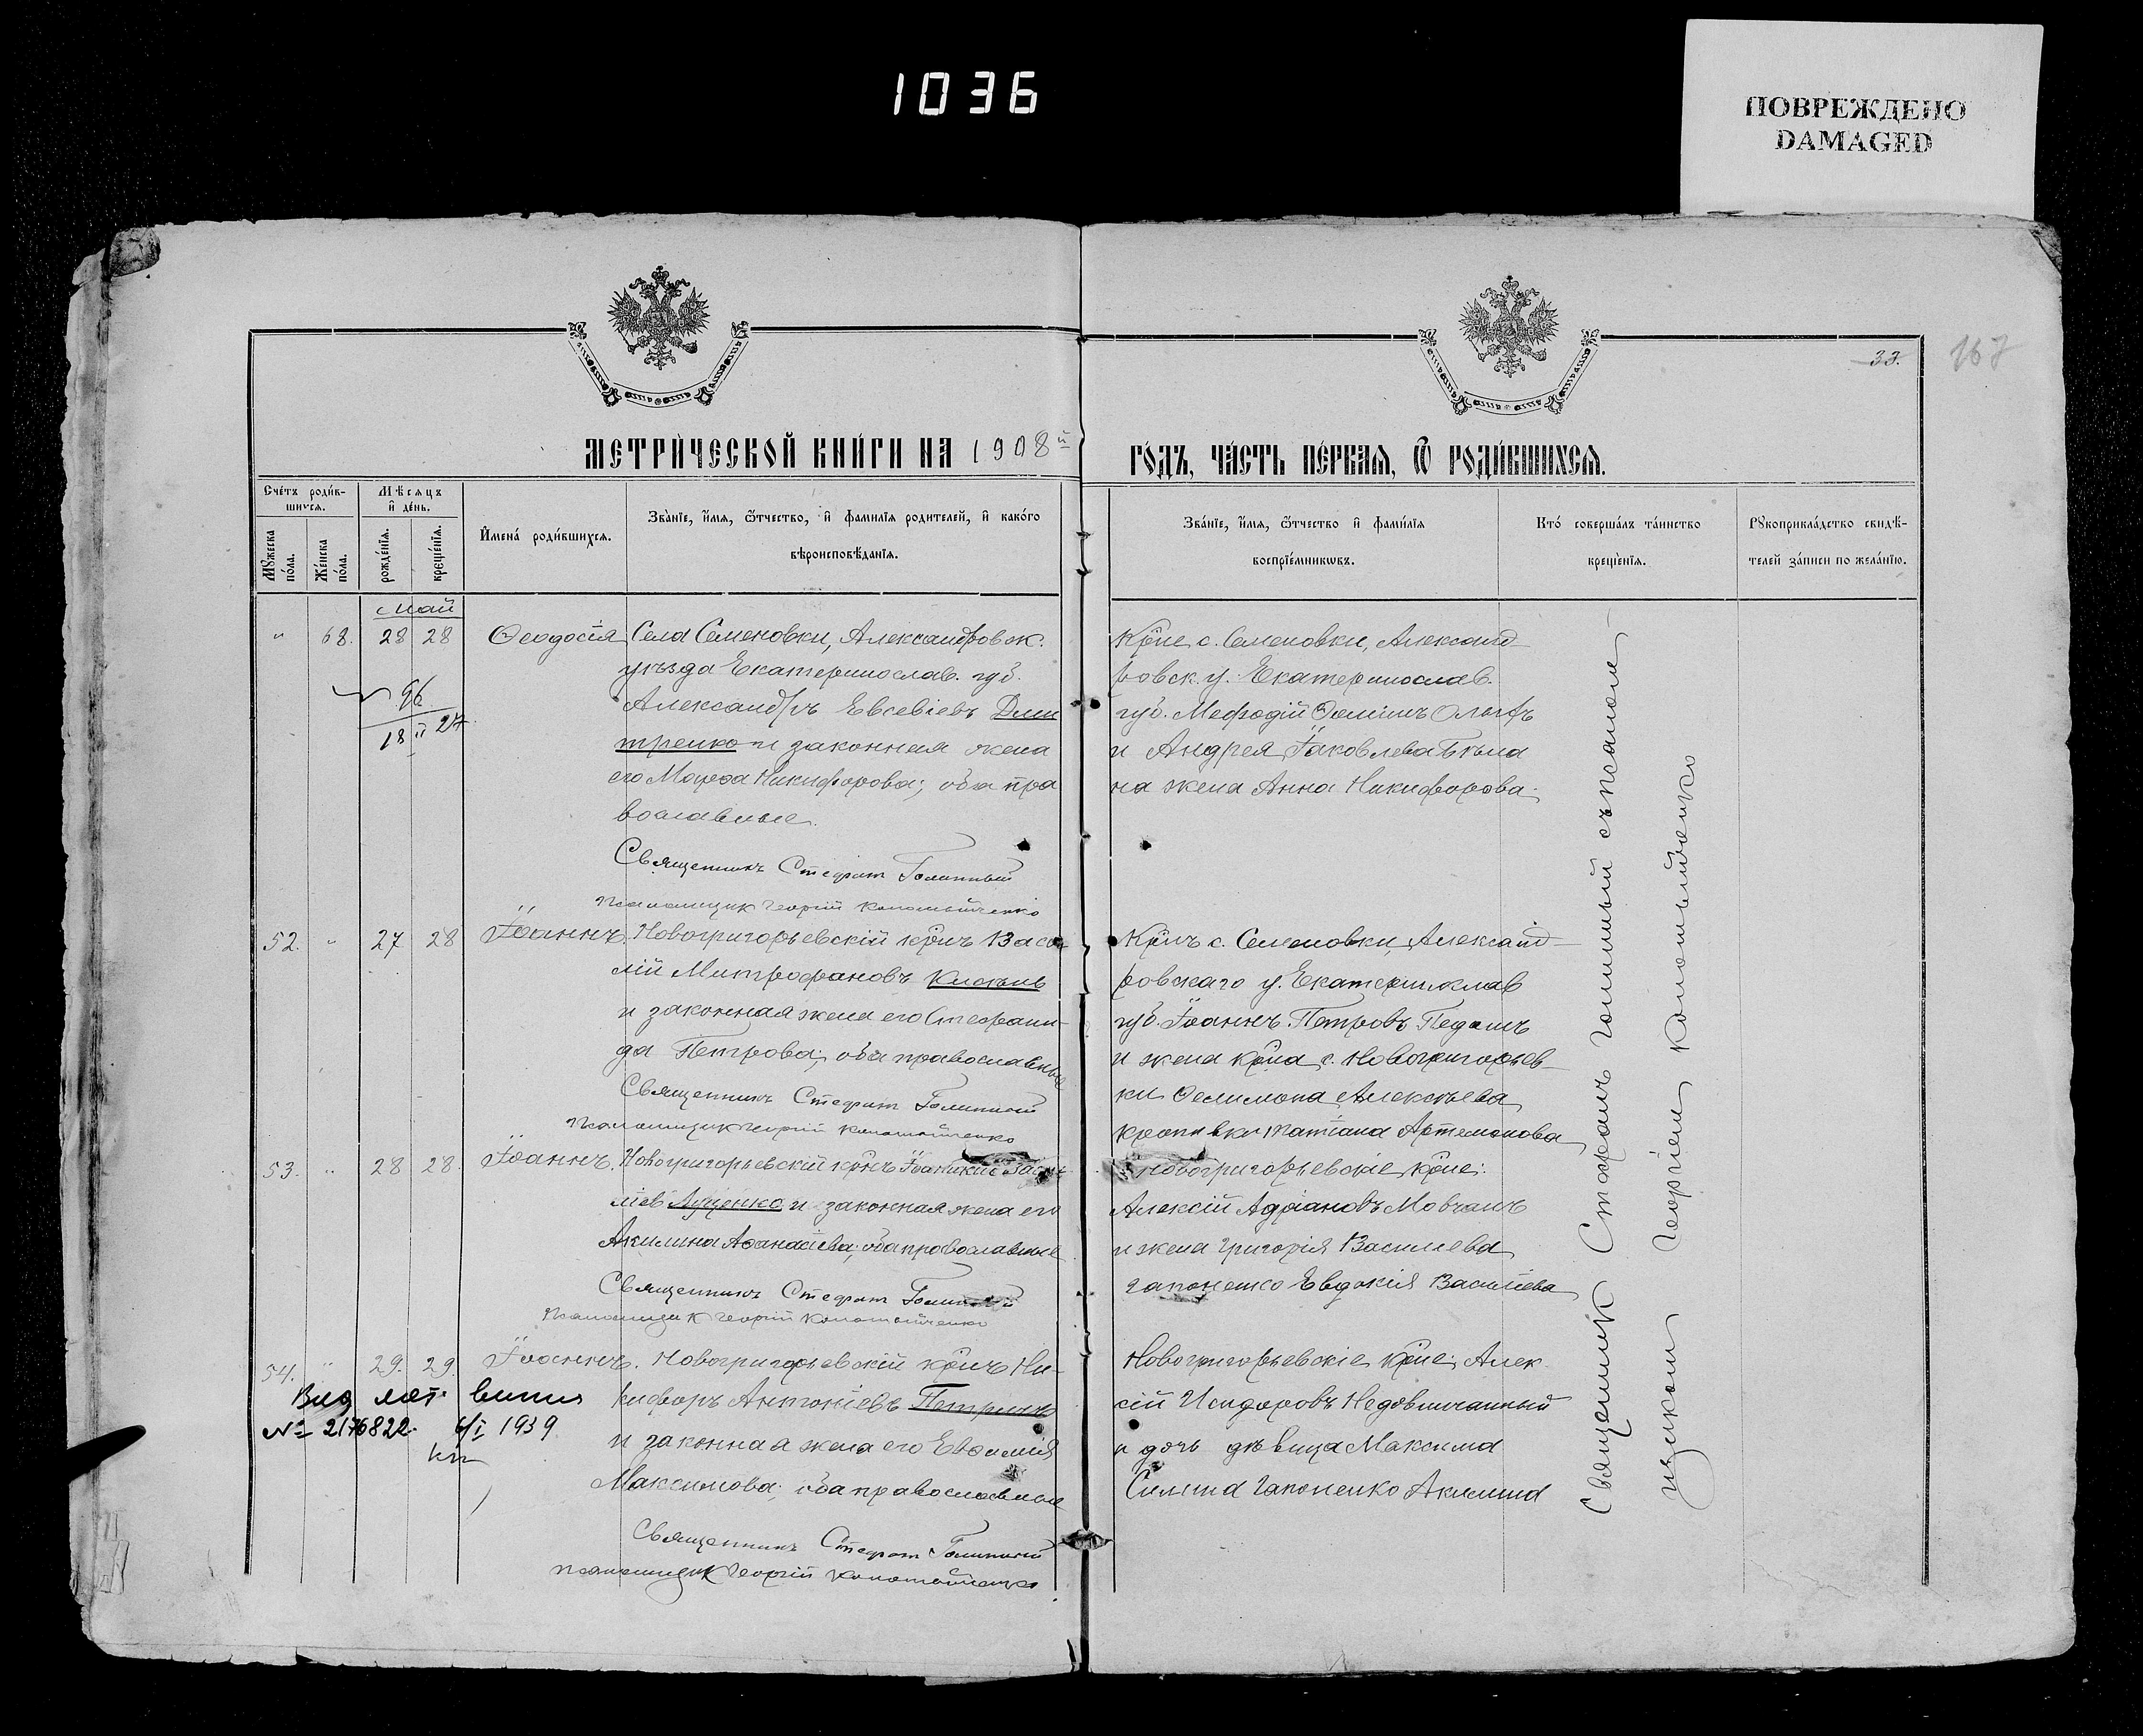 1036
ПОВРЕЖДЕНО
DAMAGED
33.
167
МЕТРИ́ЧЕСКОЙ КНИ́ГИ НА 1908й
ГО́ДЪ, ЧА́СТЬ ПЕ́РВАЯ, Ѿ РОДИ́ВШИХСЯ.
Сче́тъ роди́в-
шихся.
Мꙋжеска по́ла.
Же́нска по́ла.
Мѣсяцъ
и де́нь.
рожде́нїя.
креще́нїя.
Имена́ роди́вшихся.
Зва́нїе, и́мя, ѻ́тчество, и фами́лїя родителей, и како́го
вѣроисповѣ́данїя.
Зва́нїе, и́мя, ѻ́тчество и фами́лїя
воспрїе́мникѡвъ.
Кто́ соверша́лъ та́инство
креще́нїя.
Рꙋкоприкла́дство свидѣ́-
телей за́писи по жела́нїю.
Май
" 68. 28 28 Ѳеодосія
Села Семеновки, Александровск.
уѣзда Екатеринослав. губ.
Александръ Евсевіевъ Дми
тренко и законная жена
его Марѳа Никифорова; оба пра
вославные.
Священникъ Стефанъ Голинный
Псаломщик Георгій Коломыйченко
96
18 II 27
Крне с. Семеновки, Александ
ровск. у. Екатеринослав.
губ. Мефодій
и Андрея Іаковлева
на жена Анна Никифорова.
52. " 27 28 Іоаннъ.
Новогригорьевскій крнъ Васи
лій Митрофановъ
и законная жена его Стефани-
да Петрова; оба православные
Священникъ Стефанъ Голинный
Псаломщик Георгій Коломыйченко
Крнъ с. Семеновки, Александ-
ровскаго у. Екатеринослав
губ. Іоаннъ Петровъ
и жена крна с. Новогригорьев-
ки Филимона Алексѣева
Татіана Артемонова
53. " 28 28 Іоаннъ.
Новогригорьевскій крнъ Іоанникій Васи
ліев Луценко и законная жена его
Акилина Аѳанасіева; оба православные
Священникъ Стефанъ Голинный
Псаломщик Георгій Коломыйченко
Новогригорьевскіе крне:
Алексій Адріановъ Мовчанъ
и жена Григорія Васильева
Гапоненко Евдокія Васильева
54. " 29. 29. Іоаннъ.
Новогригорьевскій крнъ Ни-
кифоръ Антоніевъ Петренко
и законная жена его Евѳимія
Максимова; оба православные
Священникъ Стефанъ Голинный
Псаломщик Георгій Коломыйченко
Вид мет витяг
№ 2176822. 6/I 1939
Новогригорьевскіе крне: Алек
сій Исидоровъ Недовинчанный
и дочь дѣвица Максима
Гапоненко Акилина
Священник Стефанъ Голинный съ псалом
щиком Георгіем Коломыйченко